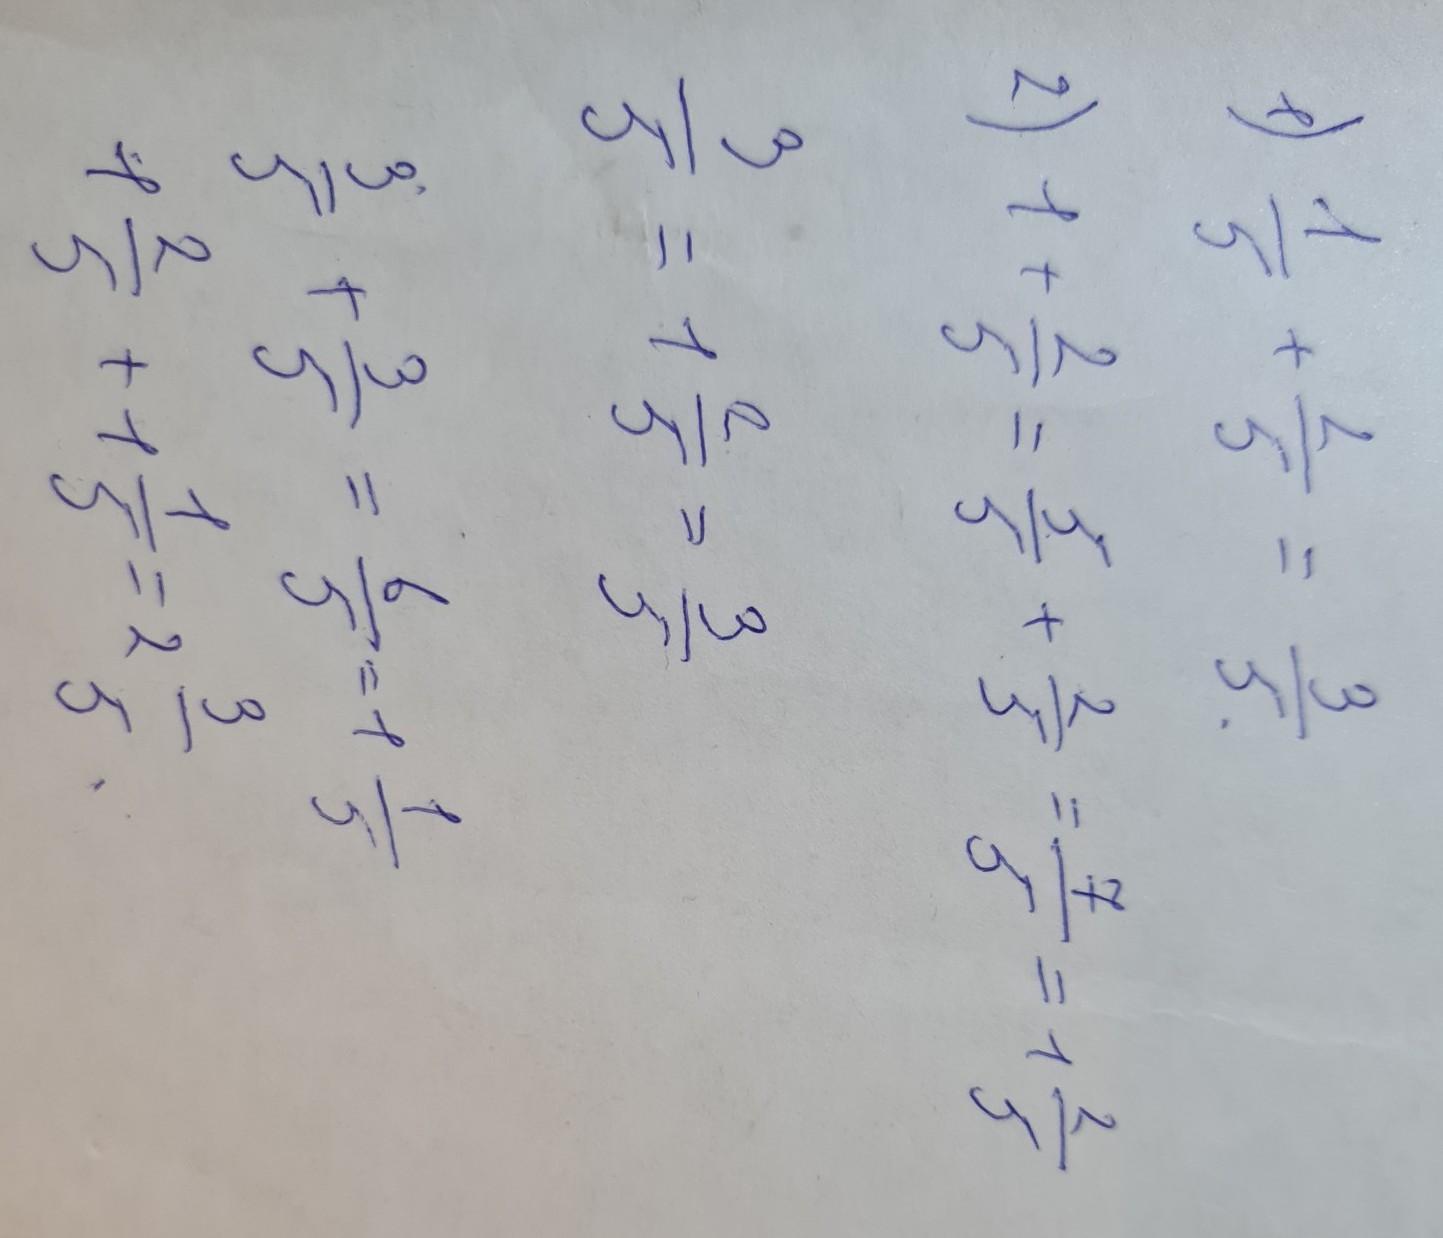 1) 1/5 + 2/5 = 3/5.
2) 1 + 2/5 = 5/5 + 2/5 = 7/5 = 1 2/5
3/5 = 1 2/5 = 3/5
3/5 + 3/5 = 6/5 = 1 1/5
1 2/5 + 1 1/5 = 2 3/5.